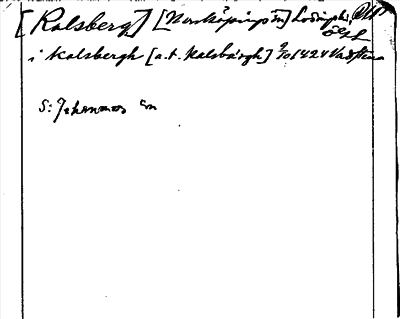 [Kalsberg] [Norrköpings sn] Lösings hd Ögl
i kalsbergh [a.t. kalsbärgh] 2/10 1424 Vadstena
S: Johannes sn